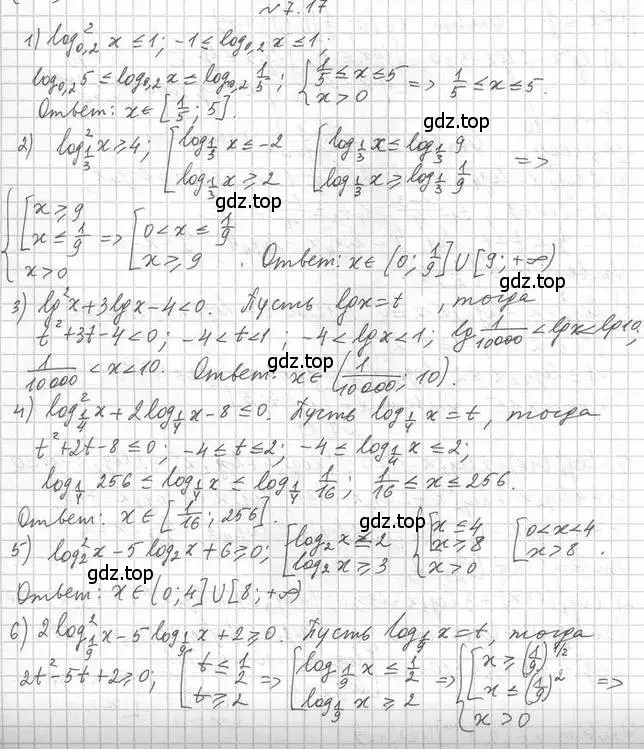 №7.17
1) log²₀,₂ x ≤ 1; -1 ≤ log₀,₂ x ≤ 1;
log₀,₂ 5 ≤ log₀,₂ x ≤ log₀,₂ 1/5; { 1/5 ≤ x ≤ 5 x > 0 => 1/5 ≤ x ≤ 5.
Ответ: x ∈ [1/5; 5].
gdz.top
2) log²_{1/3} x ≥ 4; [ log_{1/3} x ≤ -2 log_{1/3} x ≥ 2 [ log_{1/3} x ≤ log_{1/3} 9 log_{1/3} x ≥ log_{1/3} 1/9 =>
gdz.top
{ [ x ≥ 9 x ≤ 1/9 x > 0 => [ 0 < x ≤ 1/9 x ≥ 9 . Ответ: x ∈ (0; 1/9] ∪ [9; +∞)
3) lg²x + 3lgx - 4 < 0. Пусть lgx = t, тогда
gdz.top
t² + 3t - 4 < 0; -4 < t < 1; -4 < lgx < 1; lg 1/10000 < lgx < lg10;
1/10000 < x < 10. Ответ: x ∈ (1/10000; 10).
gdz.top
4) log²_{1/4} x + 2log_{1/4} x - 8 ≤ 0. Пусть log_{1/4} x = t, тогда
t² + 2t - 8 ≤ 0; -4 ≤ t ≤ 2; -4 ≤ log_{1/4} x ≤ 2;
log_{1/4} 256 ≤ log_{1/4} x ≤ log_{1/4} 1/16; 1/16 ≤ x ≤ 256.
gdz.top
Ответ: x ∈ [1/16; 256].
5) log₂²x - 5log₂x + 6 ≥ 0; [ log₂x ≤ 2 log₂x ≥ 3 { [ x ≤ 4 x ≥ 8 x > 0 [ 0 < x < 4 x > 8 .
gdz.top
Ответ: x ∈ (0; 4] ∪ [8; +∞)
6) 2log²_{1/9} x - 5log_{1/9} x + 2 ≥ 0. Пусть log_{1/9} x = t, тогда
gdz.top
2t² - 5t + 2 ≥ 0; [ t ≤ 1/2 t ≥ 2 => [ log_{1/9} x ≤ 1/2 log_{1/9} x ≥ 2 => { [ x ≥ (1/9)^{1/2} x ≤ (1/9)² x > 0 =>